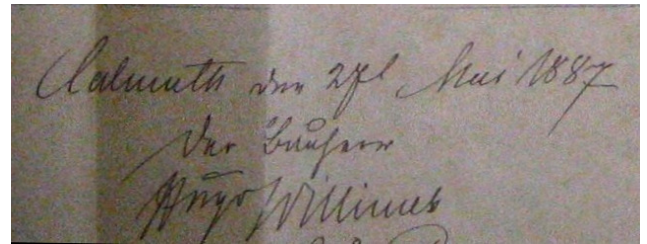 Calmuth den 27t Mai 1887
Der Bauherr
Hugo Willimek